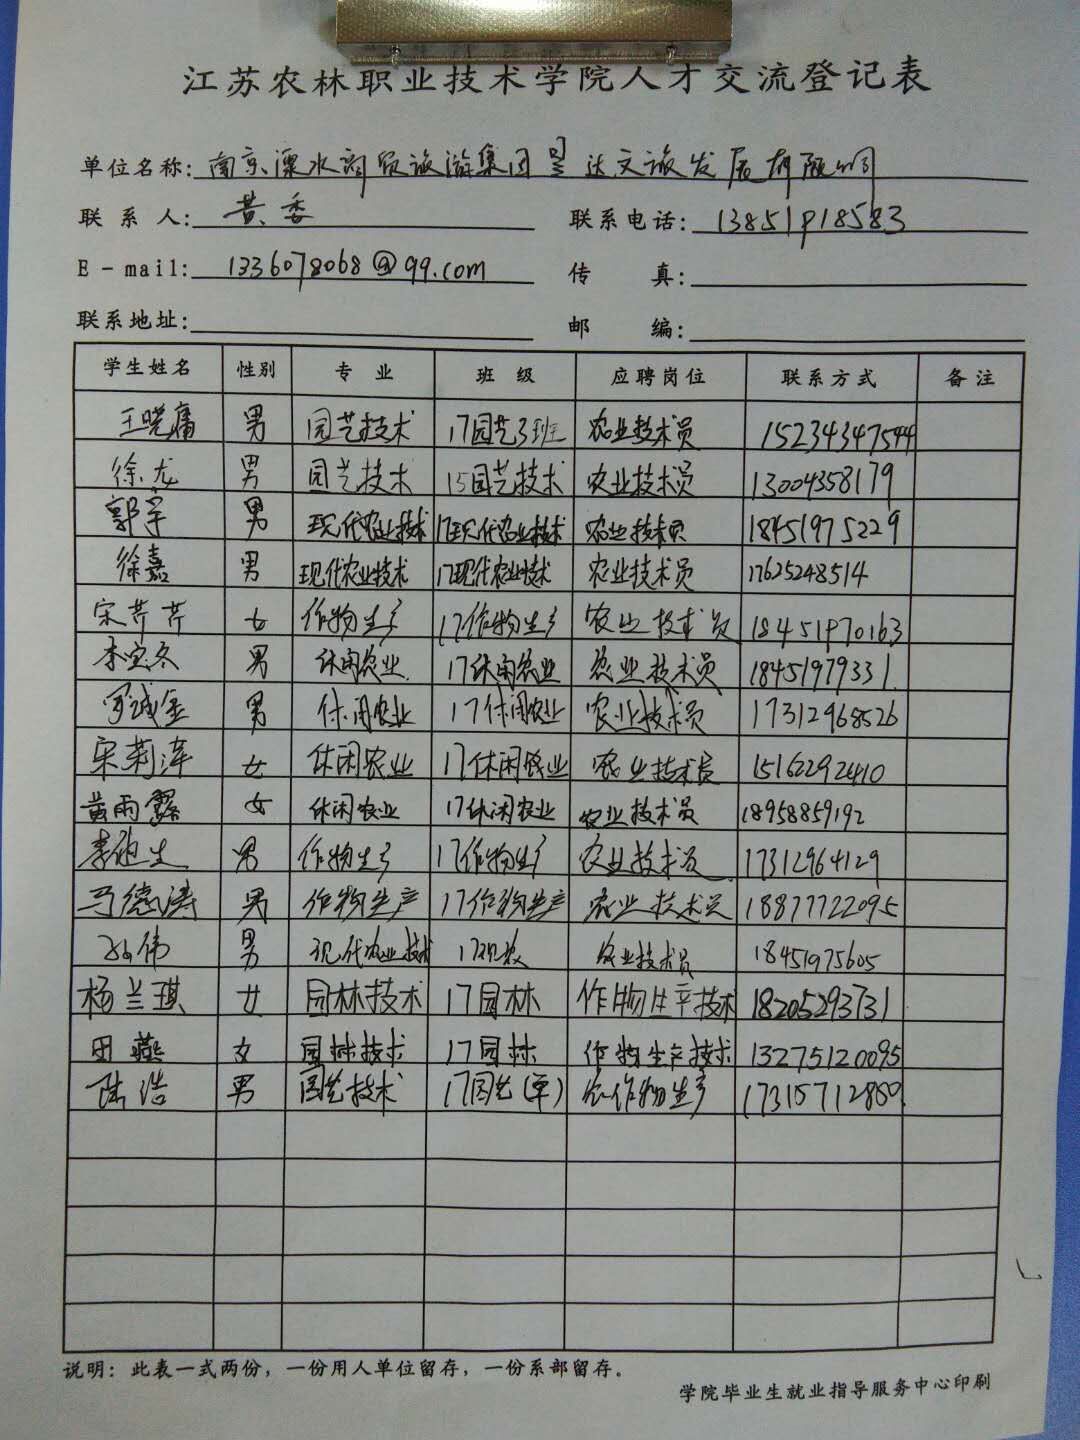 江苏农林职业技术学院人才交流登记表
单位名称: 南京溧水商贸旅游集团 达文旅发展有限公司
联系人: 黄委 联系电话: 13851918583
E-mail: 1336078068@qq.com 传真:
联系地址: 邮编:
学生姓名 性别 专业 班级 应聘岗位 联系方式 备注
王晓庸 男 园艺技术 17园艺3班 农业技术员 15234347544
徐龙 男 园艺技术 15园艺技术 农业技术员 13004358179
郭宇 男 现代农业技术 17现代农业技术 农业技术员 18451975229
徐嘉 男 现代农业技术 17现代农业技术 农业技术员 17625248514
宋芹芹 女 作物生产 17作物生产 农业技术员 18451970163
李宝冬 男 休闲农业 17休闲农业 农业技术员 18451979331
诚金 男 休闲农业 17休闲农业 农业技术员 17312968526
宋莉萍 女 休闲农业 17休闲农业 农业技术员 15162292410
黄雨露 女 休闲农业 17休闲农业 农业技术员 18958859192
李 生 男 作物生产 17作物生产 农业技术员 17312964129
马德涛 男 作物生产 17作物生产 农业技术员 18877722095
伟 男 现代农业技术 17现农 农业技术员 18451975605
杨兰琪 女 园林技术 17园林 作物生产技术 18205293731
田燕 女 园林技术 17园林 作物生产技术 13275120095
陆浩 男 园艺技术 17园艺(单) 农作物生产 17315712860
说明: 此表一式两份，一份用人单位留存，一份系部留存。
学院毕业生就业指导服务中心印刷